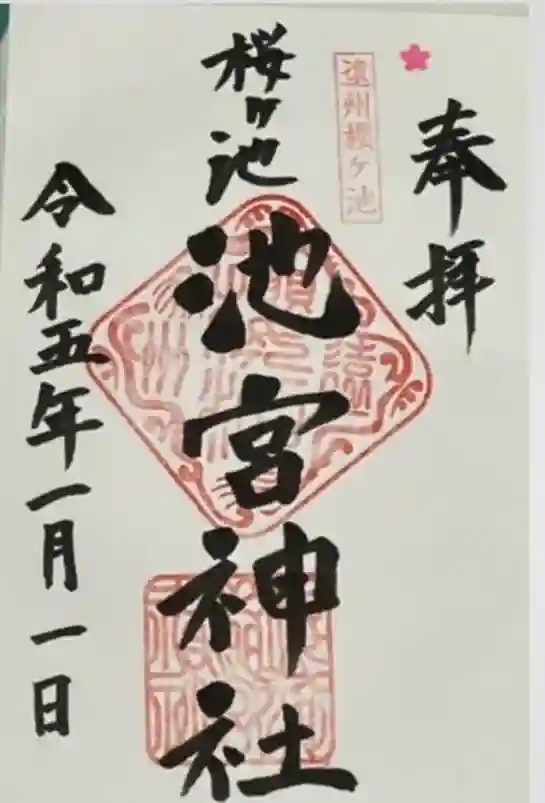 奉拝
遠州櫻ヶ池
桜ヶ池
池宮神社
令和五年一月一日